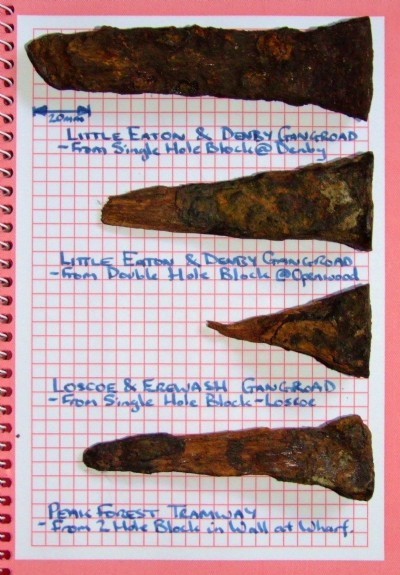 20mm
LITTLE EATON & DENBY GANGROAD
- From Single Hole Block @ Denby
LITTLE EATON & DENBY GANGROAD
- From Double Hole Block @ Openwood
LOSCOE & EREWASH GANGROAD
- From Single Hole Block - Loscoe
PEAK FOREST TRAMWAY
- From 2 Hole Block in Wall at Wharf.